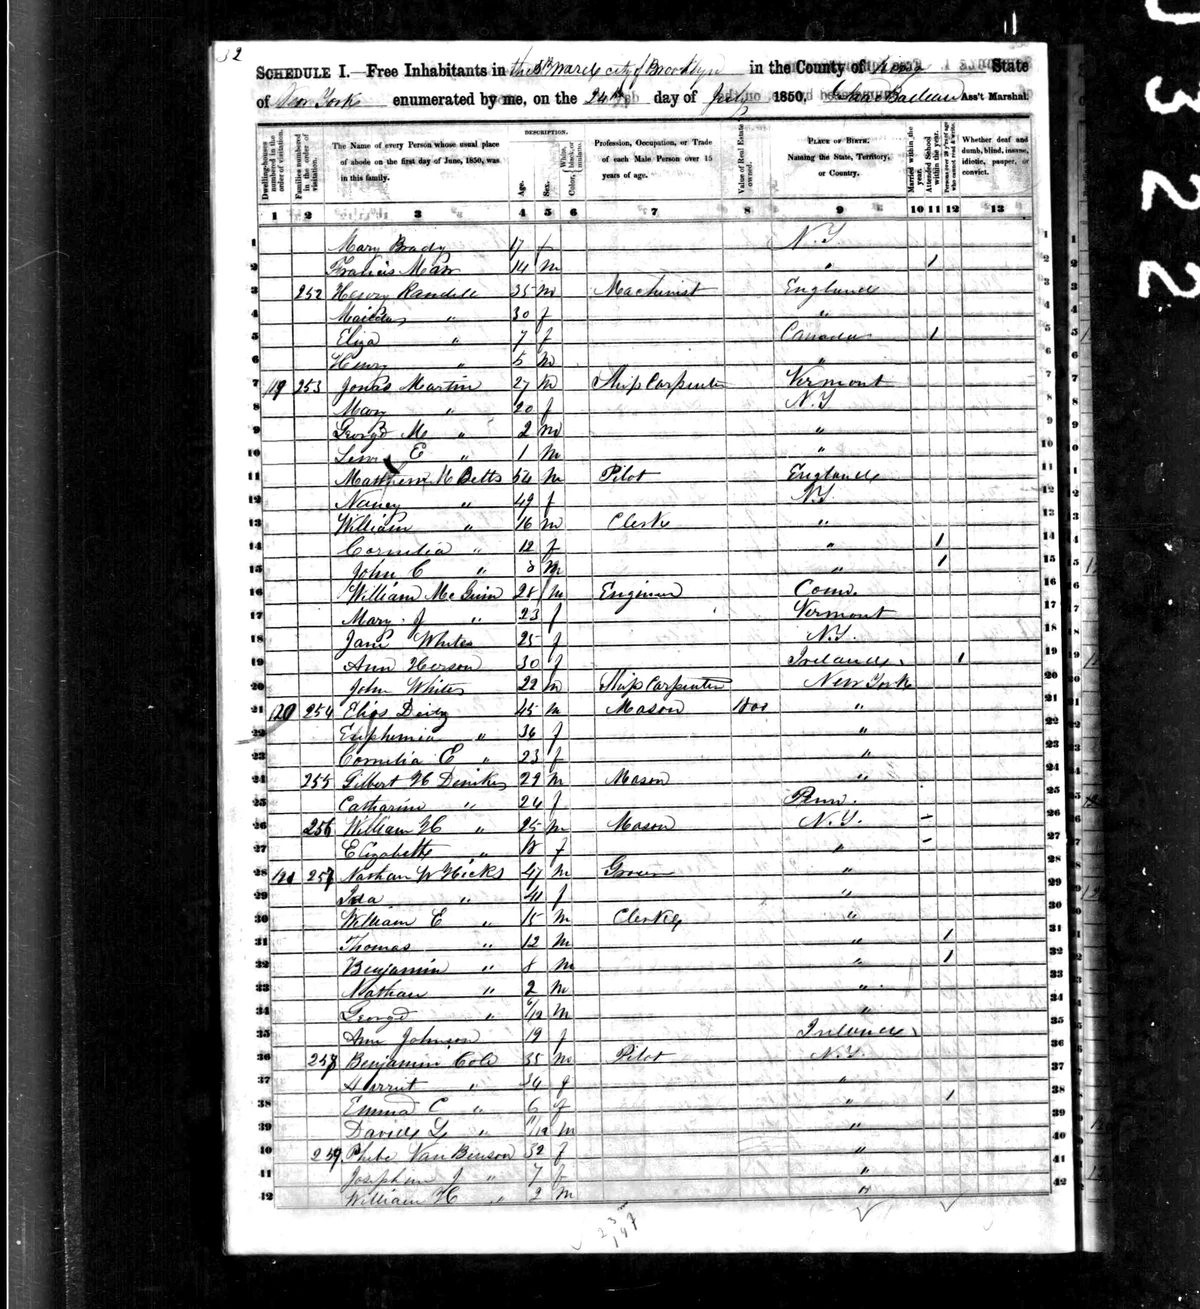 32
SCHEDULE I.—Free Inhabitants in the 5th Ward city of Brooklyn in the County of Kings State
of New York enumerated by me, on the 24th day of July 1850. Ass't Marshal.
Dwelling-houses numbered in the order of visitation.
Families numbered in the order of visitation.
The Name of every Person whose usual place of abode on the first day of June, 1850, was in this family.
DESCRIPTION.
Age.
Sex.
Color, White, black, or mulatto.
Profession, Occupation, or Trade of each Male Person over 15 years of age.
Value of Real Estate owned.
PLACE OF BIRTH. Naming the State, Territory, or Country.
Married within the year.
Attended School within the year.
Persons over 20 y'rs of age who cannot read & write.
Whether deaf and dumb, blind, insane, idiotic, pauper, or convict.
1 2 3 4 5 6 7 8 9 10 11 12 13
1 Mary Brady 17 f N.Y. 1
2 Francis 14 m " 1 2
3 252 Henry Randell 35 m Machinist England 3
4 " 30 f " 4
5 Eliza " 7 f Canada 1 5
6 Henry " 5 m " 6
7 119 253 Jonas Martin 27 m Ship Carpenter Vermont 7
8 Mary " 20 f N.Y. 8
9 George M " 2 m " 9
10 Lewis E " 1 m " 10
11 Betts 54 m Pilot England 11
12 Nancy " 49 f N.Y. 12
13 William " 16 m Clerk " 13
14 Cornelia " 12 f " 1 14
15 John C " 8 m " 1 15
16 William McGuin 28 m Engineer Conn. 16
17 Mary J " 23 f Vermont 17
18 Jane White 25 f N.Y. 18
19 Ann Herson 30 f Ireland 1 19
20 John White 22 m Ship Carpenter New York 20
21 120 254 Elias 45 m Mason 1800 " 21
22 Euphemia " 36 f " 22
23 Cornelia E " 23 f " 23
24 255 Gilbert H 29 m Mason " 24
25 Catharine " 24 f Penn. 25
26 256 William H " 25 m Mason N.Y. – 26
27 Elizabeth " 18 f " – 27
28 121 257 Nathan W Hicks 47 m Grocer " 28
29 Ida " 41 f " 29
30 William E " 15 m Clerk " 30
31 Thomas " 12 m " 1 31
32 Benjamin " 8 m " 1 32
33 Nathan " 2 m " 33
34 George " m " 34
35 Ann Johnson 19 f Ireland 35
36 258 Benjamin Cole 35 m Pilot N.Y. 36
37 Harriet " 34 f " 37
38 Emma C " 6 f " 1 38
39 David L " 11/12 m " 39
40 259 Phebe Van Benson 32 f " 40
41 Josephine J " 7 f " 41
42 William H " 2 m " 42
0322